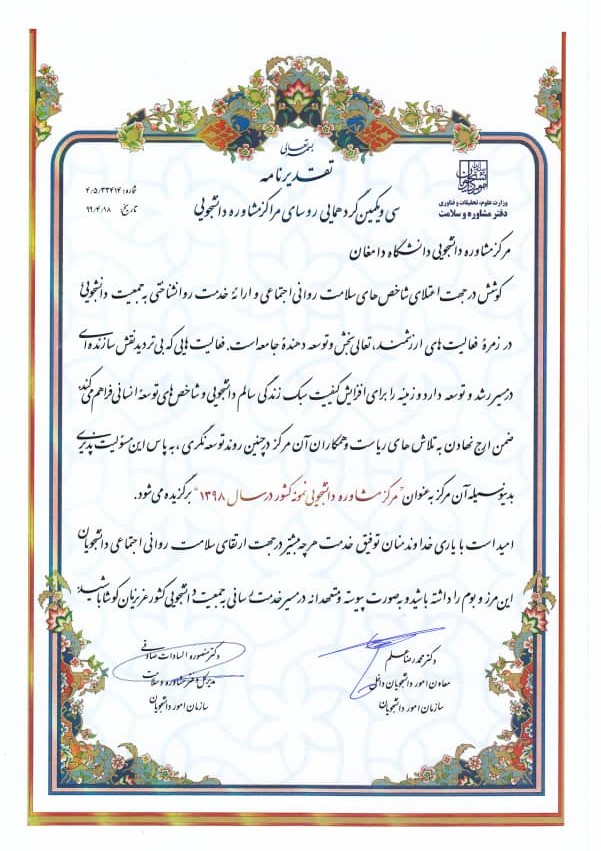 بسمه تعالی
تقدیرنامه
سی و یکمین گردهمایی روسای مراکز مشاوره دانشجویی
شماره: ۴/۵/۳۳۴۱۴
تاریخ: ۹۹/۴/۱۸
وزارت علوم، تحقیقات و فناوری
دفتر مشاوره و سلامت
مرکز مشاوره دانشجویی دانشگاه دامغان
کوشش در جهت اعتلای شاخص های سلامت روانی اجتماعی و ارائه خدمت روانشناختی به جمعیت دانشجویی
در زمرهٔ فعالیت های ارزشمند، تعالی بخش و توسعه دهندهٔ جامعه است. فعالیت هایی که بی تردید نقش سازنده ای
در مسیر رشد و توسعه دارد و زمینه را برای افزایش کیفیت سبک زندگی سالم دانشجویی و شاخص های توسعهٔ انسانی فراهم می کند؛
ضمن ارج نهادن به تلاش های ریاست و همکاران آن مرکز در چنین روند توسعه نگری، به پاس این مسئولیت پذیری
بدینوسیله آن مرکز به عنوان "مرکز مشاوره دانشجویی نمونه کشور در سال ۱۳۹۸" برگزیده می شود.
امید است با یاری خداوند منان توفیق خدمت هرچه بیشتر در جهت ارتقای سلامت روانی اجتماعی دانشجویان
این مرز و بوم را داشته باشید و به صورت پیوسته و متعهدانه در مسیر خدمت رسانی به جمعیت دانشجویی کشور عزیزمان کوشا باشید.
دکتر محمدرضا علم
معاون امور دانشجویان داخل
سازمان امور دانشجویان
دکتر منصوره السادات صادقی
مدیرکل دفتر مشاوره و سلامت
سازمان امور دانشجویان